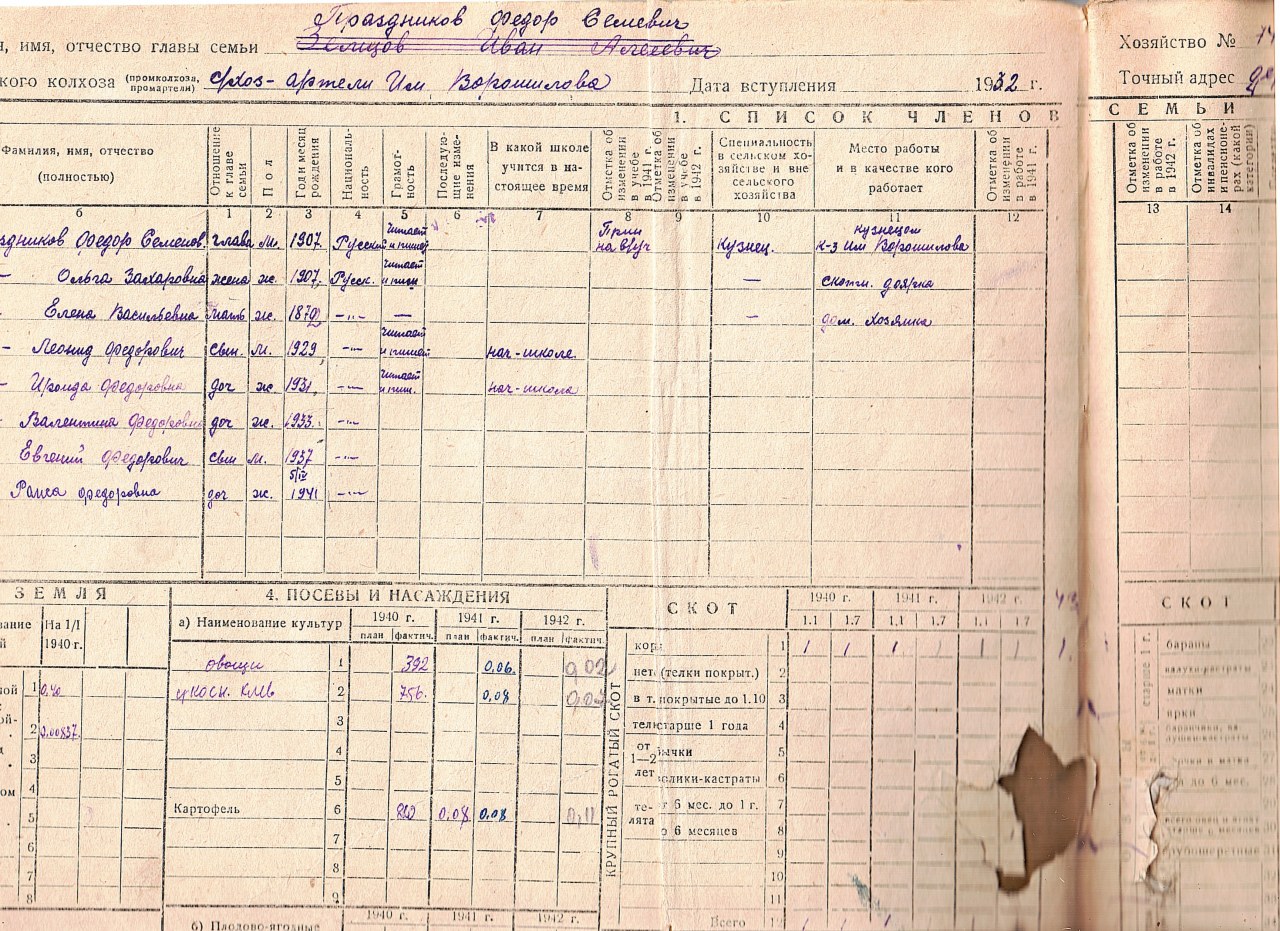 Праздников Федор Семевич
, имя, отчество главы семьи Иван
кого колхоза (промколхоза, промартели) с/хоз-артели Им Ворошилова Дата вступления 1932 г.
Хозяйство №
Точный адрес
1. СПИСОК ЧЛЕНОВ СЕМЬИ
Фамилия, имя, отчество (полностью)
Отношение к главе семьи
Пол
Год и месяц рождения
Националь-ность
Грамот-ность
Последую-щие изме-нения
В какой школе учится в на-стоящее время
Отметка об изменении в учебе в 1941 г.
Отметка об изменении в учебе в 1942 г.
Специальность в сельском хо-зяйстве и вне сельского хозяйства
Место работы и в качестве кого работает
Отметка об изменении в работе в 1941 г.
Отметка об изменении в работе в 1942 г.
Отметка об инвалидах и пенсионе-рах (какой категории)
б 1 2 3 4 5 6 7 8 9 10 11 12 13 14
здников Федор Семенов. глава м. 1907. Русский читает и пишет Кузнец. Кузнецом к-з Им Ворошилова
— Ольга Захаровна жена ж. 1907. Русск. читает и пиш — скотн. доярка
Елена Васильевна мать ж. — — дом. хозяйка
— Леонид Федорович сын. м. 1929 —"— читает и пишет нач-школе.
— Ираида Федоровна доч ж. 1931. —"— читает и пиш. нач-школа
— Валентина Федоровна доч ж. 1933. —"—
Евгений Федорович сын м. 1937 —"—
Раиса Федоровна доч ж. 5/IV 1941 —"—
ЗЕМЛЯ
На 1/I 1940 г.
1 0,40
2 0,00837
3
4
5
6
7
8
4. ПОСЕВЫ И НАСАЖДЕНИЯ
а) Наименование культур 1940 г. 1941 г. 1942 г.
план фактич. план фактич. план фактич.
овощи 1 392 0,06. 0,02
2 756. 0,08
3
4
5
Картофель 6 0,08 0,08 0,11
7
8
9
1940 г. 1941 г. 1942 г.
б) Плодово-ягодные
СКОТ
1940 г. 1941 г. 1942 г.
1.1 1.7 1.1 1.7 1.1 1.7
КРУПНЫЙ РОГАТЫЙ СКОТ
1 1 1 1 1 1 1
нет (телки покрыт.) 2
в т. покрытые до 1.10 3
старше 1 года 4
от 1—2 лет ычки 5
олики-кастраты 6
те-лята 6 мес. до 1 г. 7
о 6 месяцев 8
9
10
11
Всего 12 1 1 1
СКОТ
старше 1 г.
бараны
валухи-кастраты
матки
ярки
до 6 мес.